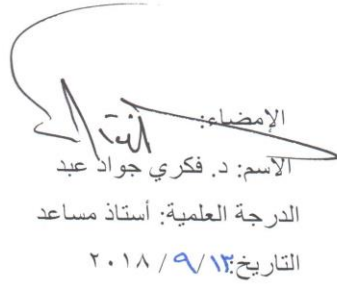 الإمضاء:
الاسم: د. فكري جواد عبد
الدرجة العلمية: أستاذ مساعد
التاريخ: ١٣/ ٩ / ٢٠١٨